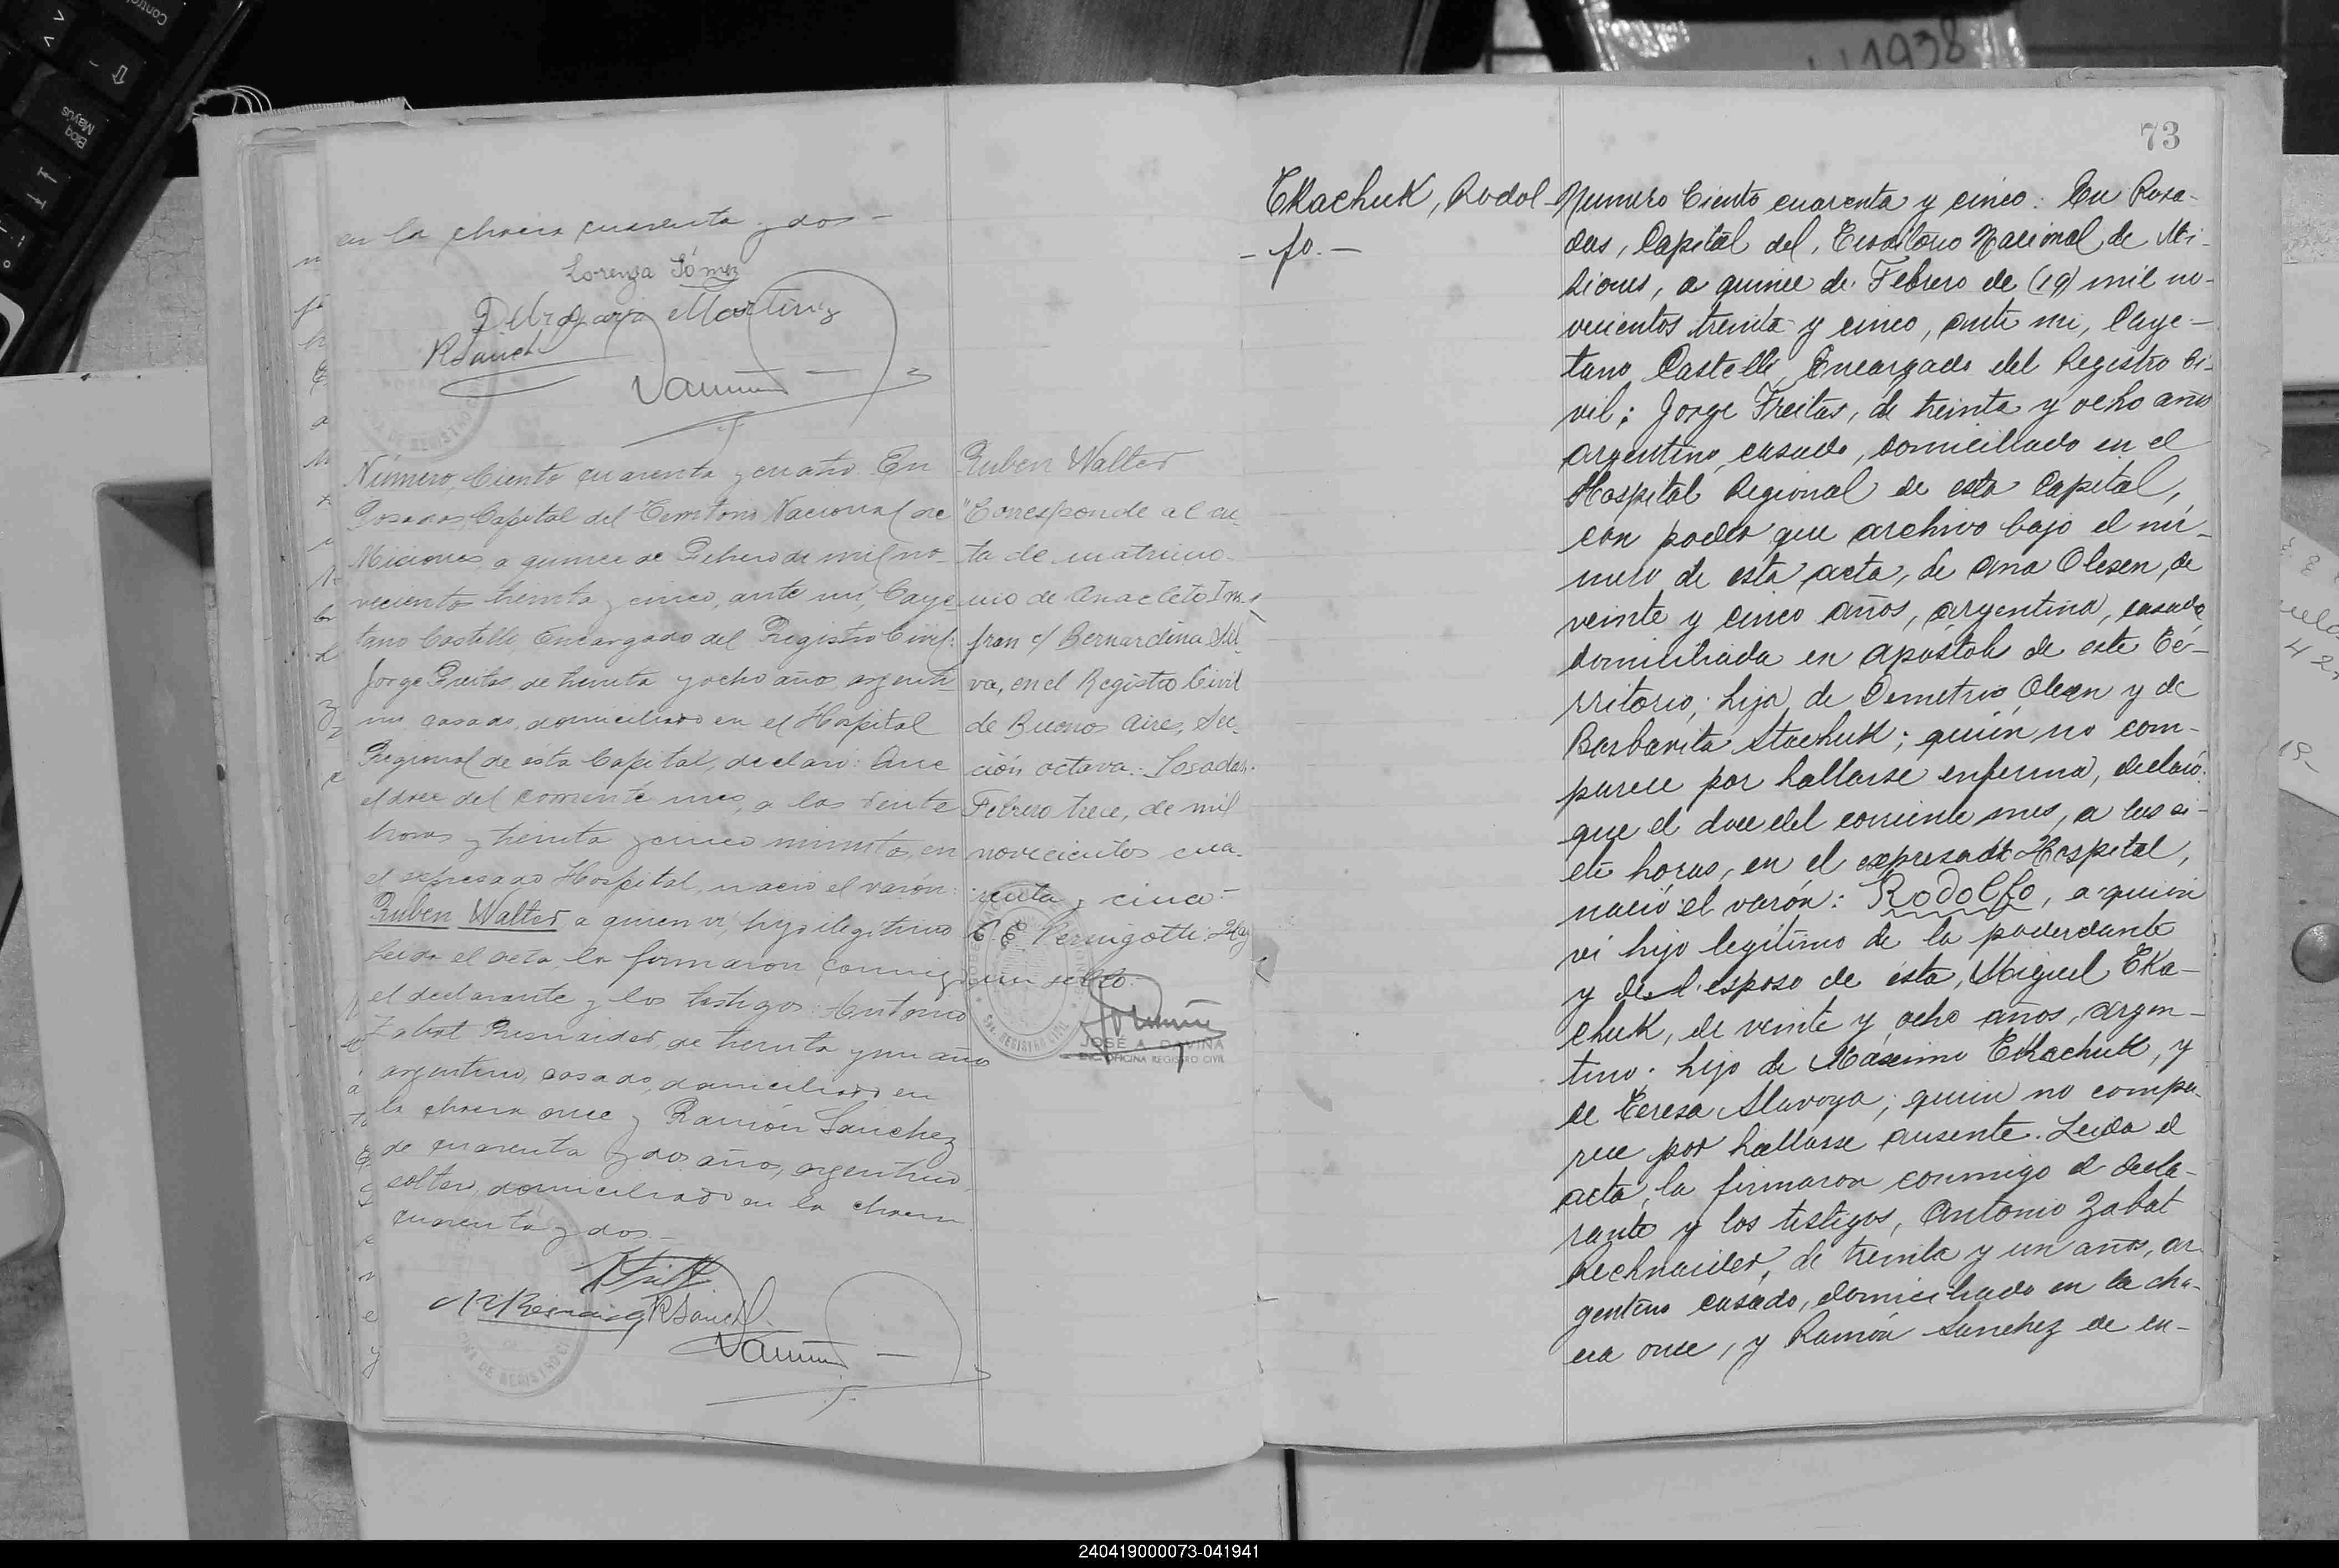 en la chacra cuarenta y dos -
Lorenza Gómez
Martinez
RSanch
Número, Ciento cuarenta y cuatro. En
Posadas, Capital del Territorio Nacional de
Misiones, a quince de Febrero de mil no-
vecientos treinta y cinco, ante mi, Caye
tano Castelli, Encargado del Registro Civil:
Jorge Freitas, de treinta y ocho años, argenti-
no, casado, domiciliado en el Hospital
Regional de esta Capital, declaró: Que
el doce del corriente mes, a las veinte
horas y treinta y cinco minutos, en
el expresado Hospital, nació el varón:
Ruben Walter, a quien vi, hijo ilegítimo
Leida el acta, la firmaron conmigo
el declarante y los testigos: Antonio
Zabat Resnaider, de treinta y un años
argentino, casado, domiciliado en
la chacra once y Ramón Sanchez
de cuarenta y dos años, argentino,
soltero, domiciliado en la chacra
cuarenta y dos -
RSanch
Ruben Walter
"Corresponde al ac-
ta de matrimo-
nio de Anacleto
fran c/ Bernardina Sil-
va, en el Registro Civil
de Buenos Aires, Sec-
ción octava: Posadas.
Febrero trece, de mil
novecientos cua-
renta y cinco -
un sello
JOSÉ A. DAVIÑA
ENC. OFICINA REGISTRO CIVIL
73
Tkachuk, Rodol-
- fo. -
Numero Ciento cuarenta y cinco: En Posa-
das, Capital del, Territorio Nacional de Mi-
siones, a quince de Febrero de (19) mil no-
vecientos treinta y cinco, ante mi, Caye-
tano Castelli, Encargado del Registro Ci-
vil; Jorge Freitas, de treinta y ocho años
argentino, casado, domiciliado en el
Hospital Regional de esta Capital,
con poder que archivo bajo el nú-
mero de esta acta, de Ana Olesen, de
veinte y cinco años, argentina, casada
domiciliada en Apóstoles de este Te-
rritorio; hija de Demetrio Olesen y de
Barbarita Stachuk; quién no com-
parece por hallarse enferma, declaró:
que el doce del corriente mes, a las si-
ete horas, en el expresado Hospital,
nació el varón: Rodolfo, a quien
vi hijo legítimo de la poderdante
y del esposo de ésta, Miguel Tka-
chuk, de veinte y ocho años, argen-
tino. hijo de Máximo Tkachuk, y
de Teresa Slavoya; quien no compa-
rece por hallarse ausente. Leida el
acta, la firmaron conmigo el decla-
rante y los testigos, Antonio Zabat
Rechnaider, de treinta y un años, ar
gentino casado, domiciliado en la cha-
cra once, y Ramón Sanchez de cu-
1938
240419000073-041941